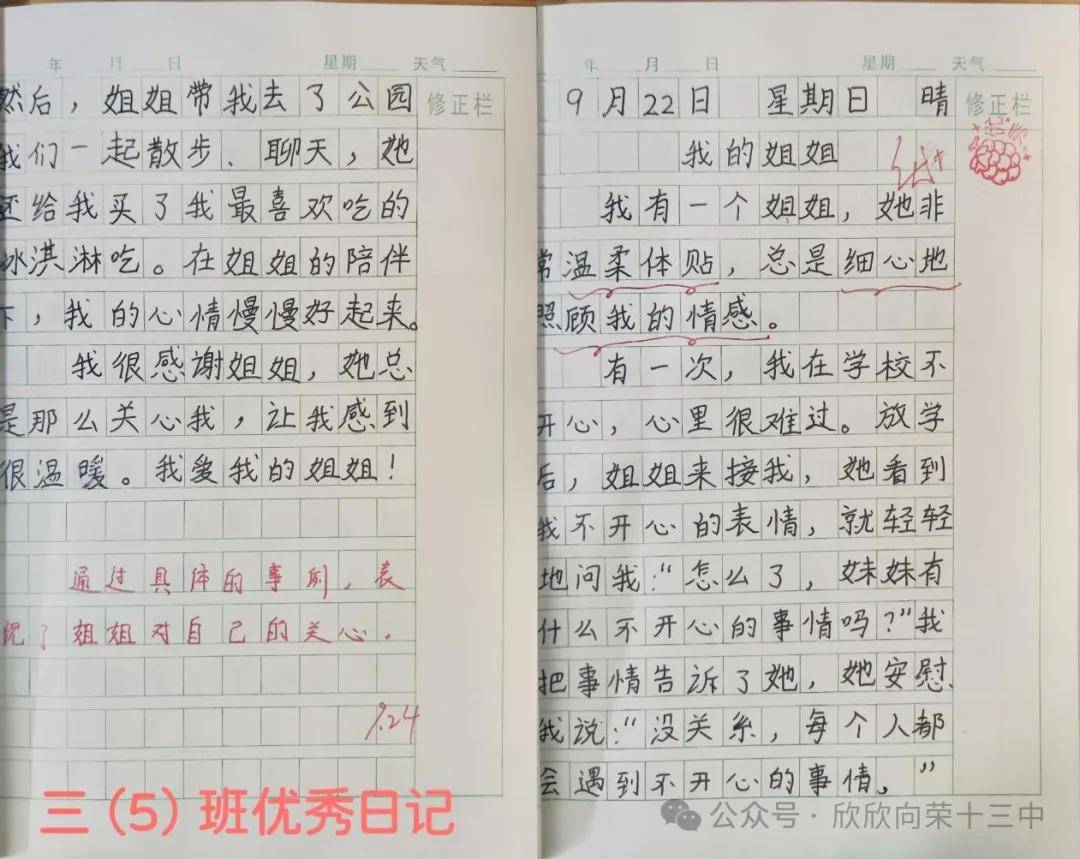 年 月 日 星期 天气
然后，姐姐带我去了公园
修正栏
我们一起散步、聊天，她
还给我买了我最喜欢吃的
冰淇淋吃。在姐姐的陪伴
下，我的心情慢慢好起来。
我很感谢姐姐，她总
是那么关心我，让我感到
很温暖。我爱我的姐姐！
通过具体的事例，表
现了姐姐对自己的关心。
9.24
三（5）班优秀日记
年 月 日 星期 天气
9月22日 星期日 晴
修正栏
我的姐姐
我有一个姐姐，她非
常温柔体贴，总是细心地
照顾我的情感。
有一次，我在学校不
开心，心里很难过。放学
后，姐姐来接我，她看到
我不开心的表情，就轻轻
地问我：“怎么了，妹妹有
什么不开心的事情吗？”我
把事情告诉了她，她安慰
我说：“没关系，每个人都
会遇到不开心的事情。”
公众号·欣欣向荣十三中